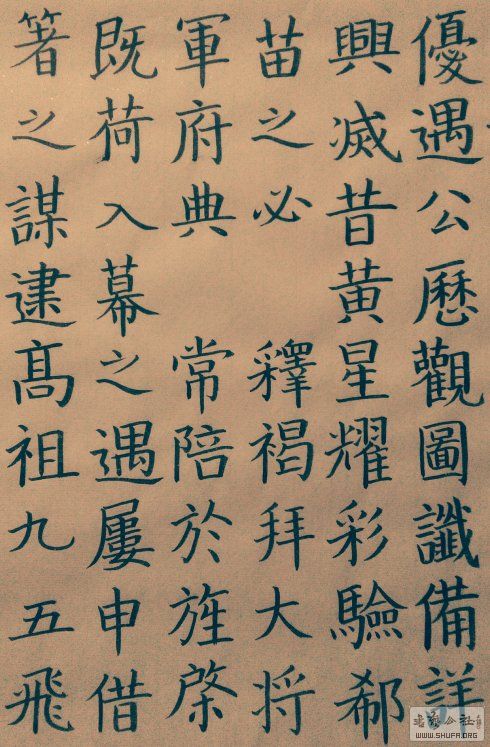 優遇公歷觀圖讖備詳
興滅昔黄星耀彩驗郗
苗之必 釋褐拜大将
軍府典 常陪於旌棨
既荷入幕之遇屢申借
箸之謀逮髙祖九五飛
WWW.SHUFA.ORG